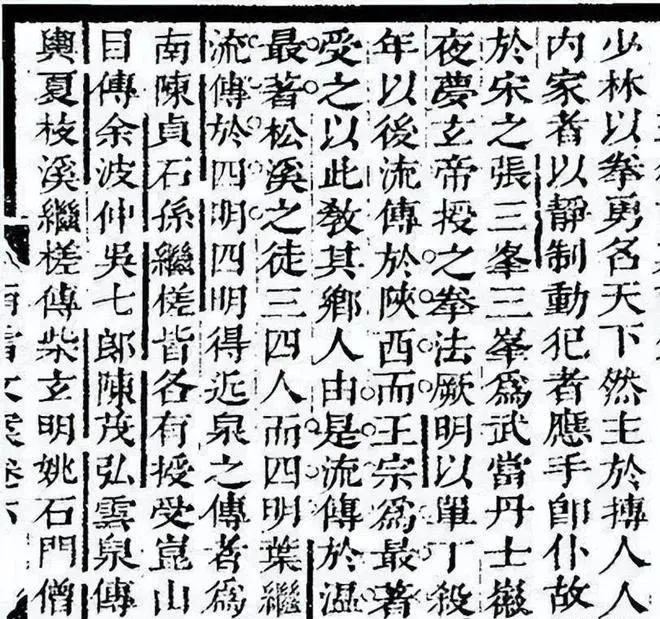 少林以拳勇名天下然主於搏人人
內家者以靜制動犯者應手卽仆故
於宋之張三峯三峯爲武當丹士徽
夜夢玄帝授之拳法厥明以單丁殺
年以後流傳於陝西而王宗爲最著
受之以此敎其鄉人由是流傳於溫
最著松溪之徒三四人而四明葉繼
流傳於四明四明得近泉之傳者爲
南陳貞石孫繼槎皆各有授受崑山
目傳余波仲吳七郎陳茂弘雲泉傳
輿夏枝溪繼槎傳柴玄明姚石門僧